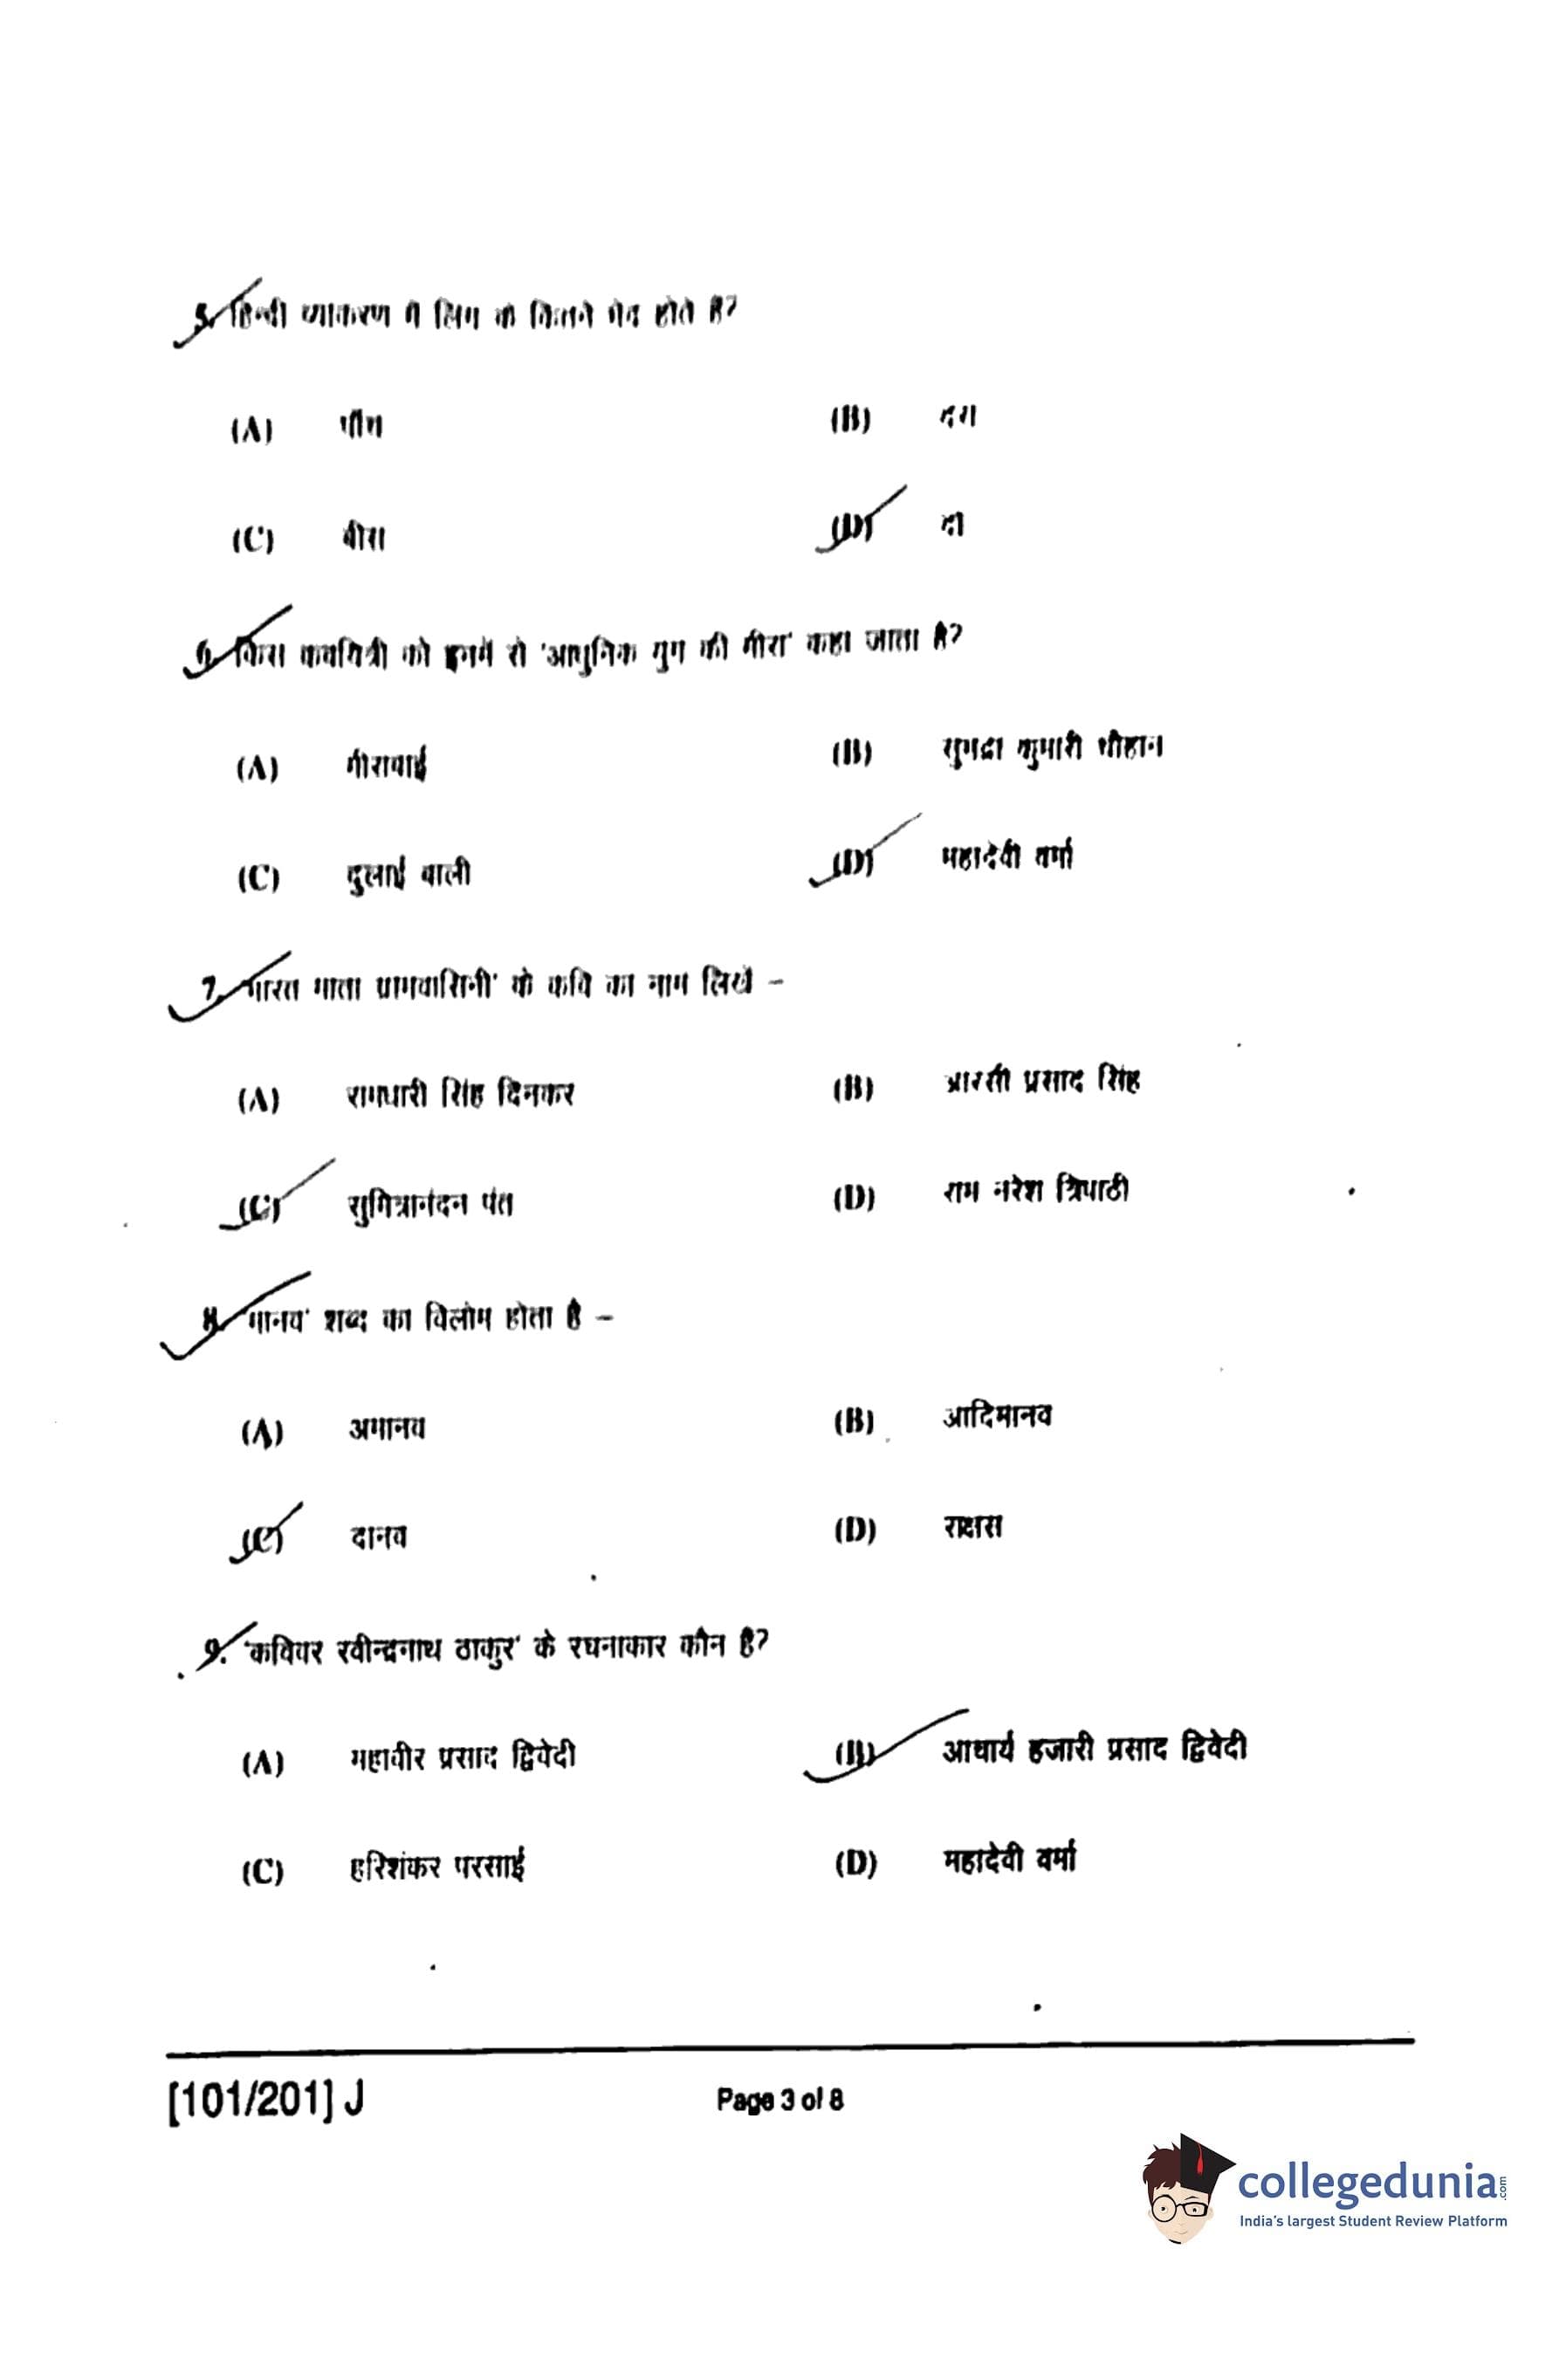 5. हिन्दी व्याकरण में लिंग के कितने भेद होते हैं?
(A) पाँच (B) दस
(C) बीस (D) दो
6. किस कवयित्री को इनमें से 'आधुनिक युग की मीरा' कहा जाता है?
(A) मीराबाई (B) सुभद्रा कुमारी चौहान
(C) दुलाई वाली (D) महादेवी वर्मा
7. 'भारत माता ग्रामवासिनी' के कवि का नाम लिखें –
(A) रामधारी सिंह दिनकर (B) आरसी प्रसाद सिंह
(C) सुमित्रानंदन पंत (D) राम नरेश त्रिपाठी
8. 'मानव' शब्द का विलोम होता है –
(A) अमानव (B) आदिमानव
(C) दानव (D) राक्षस
9. 'कविवर रवीन्द्रनाथ ठाकुर' के रचनाकार कौन हैं?
(A) महावीर प्रसाद द्विवेदी (B) आचार्य हजारी प्रसाद द्विवेदी
(C) हरिशंकर परसाई (D) महादेवी वर्मा
[101/201] J Page 3 of 8
collegedunia.com
India's largest Student Review Platform